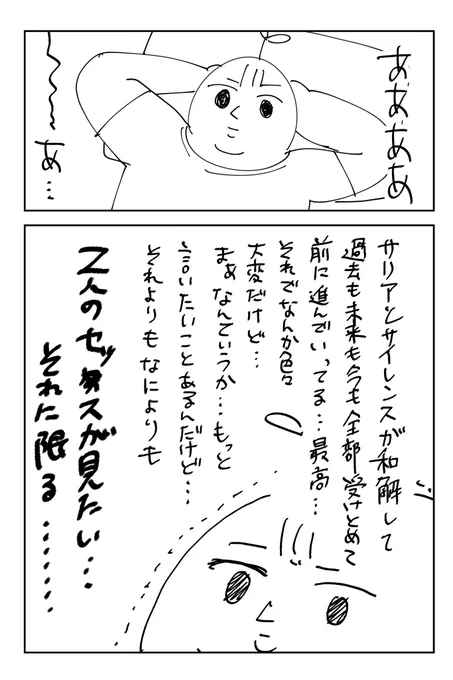 ああああ
〜〜〜あ…
サリアとサイレンスが和解して
過去も未来も今も全部受けとめて
前に進んでいってる…最高…
それでなんか色々
大変だけど…
まぁなんていうか…もっと
言いたいことあるんだけど…
それよりもなによりも
2人のセックスが見たい…
それに限る………